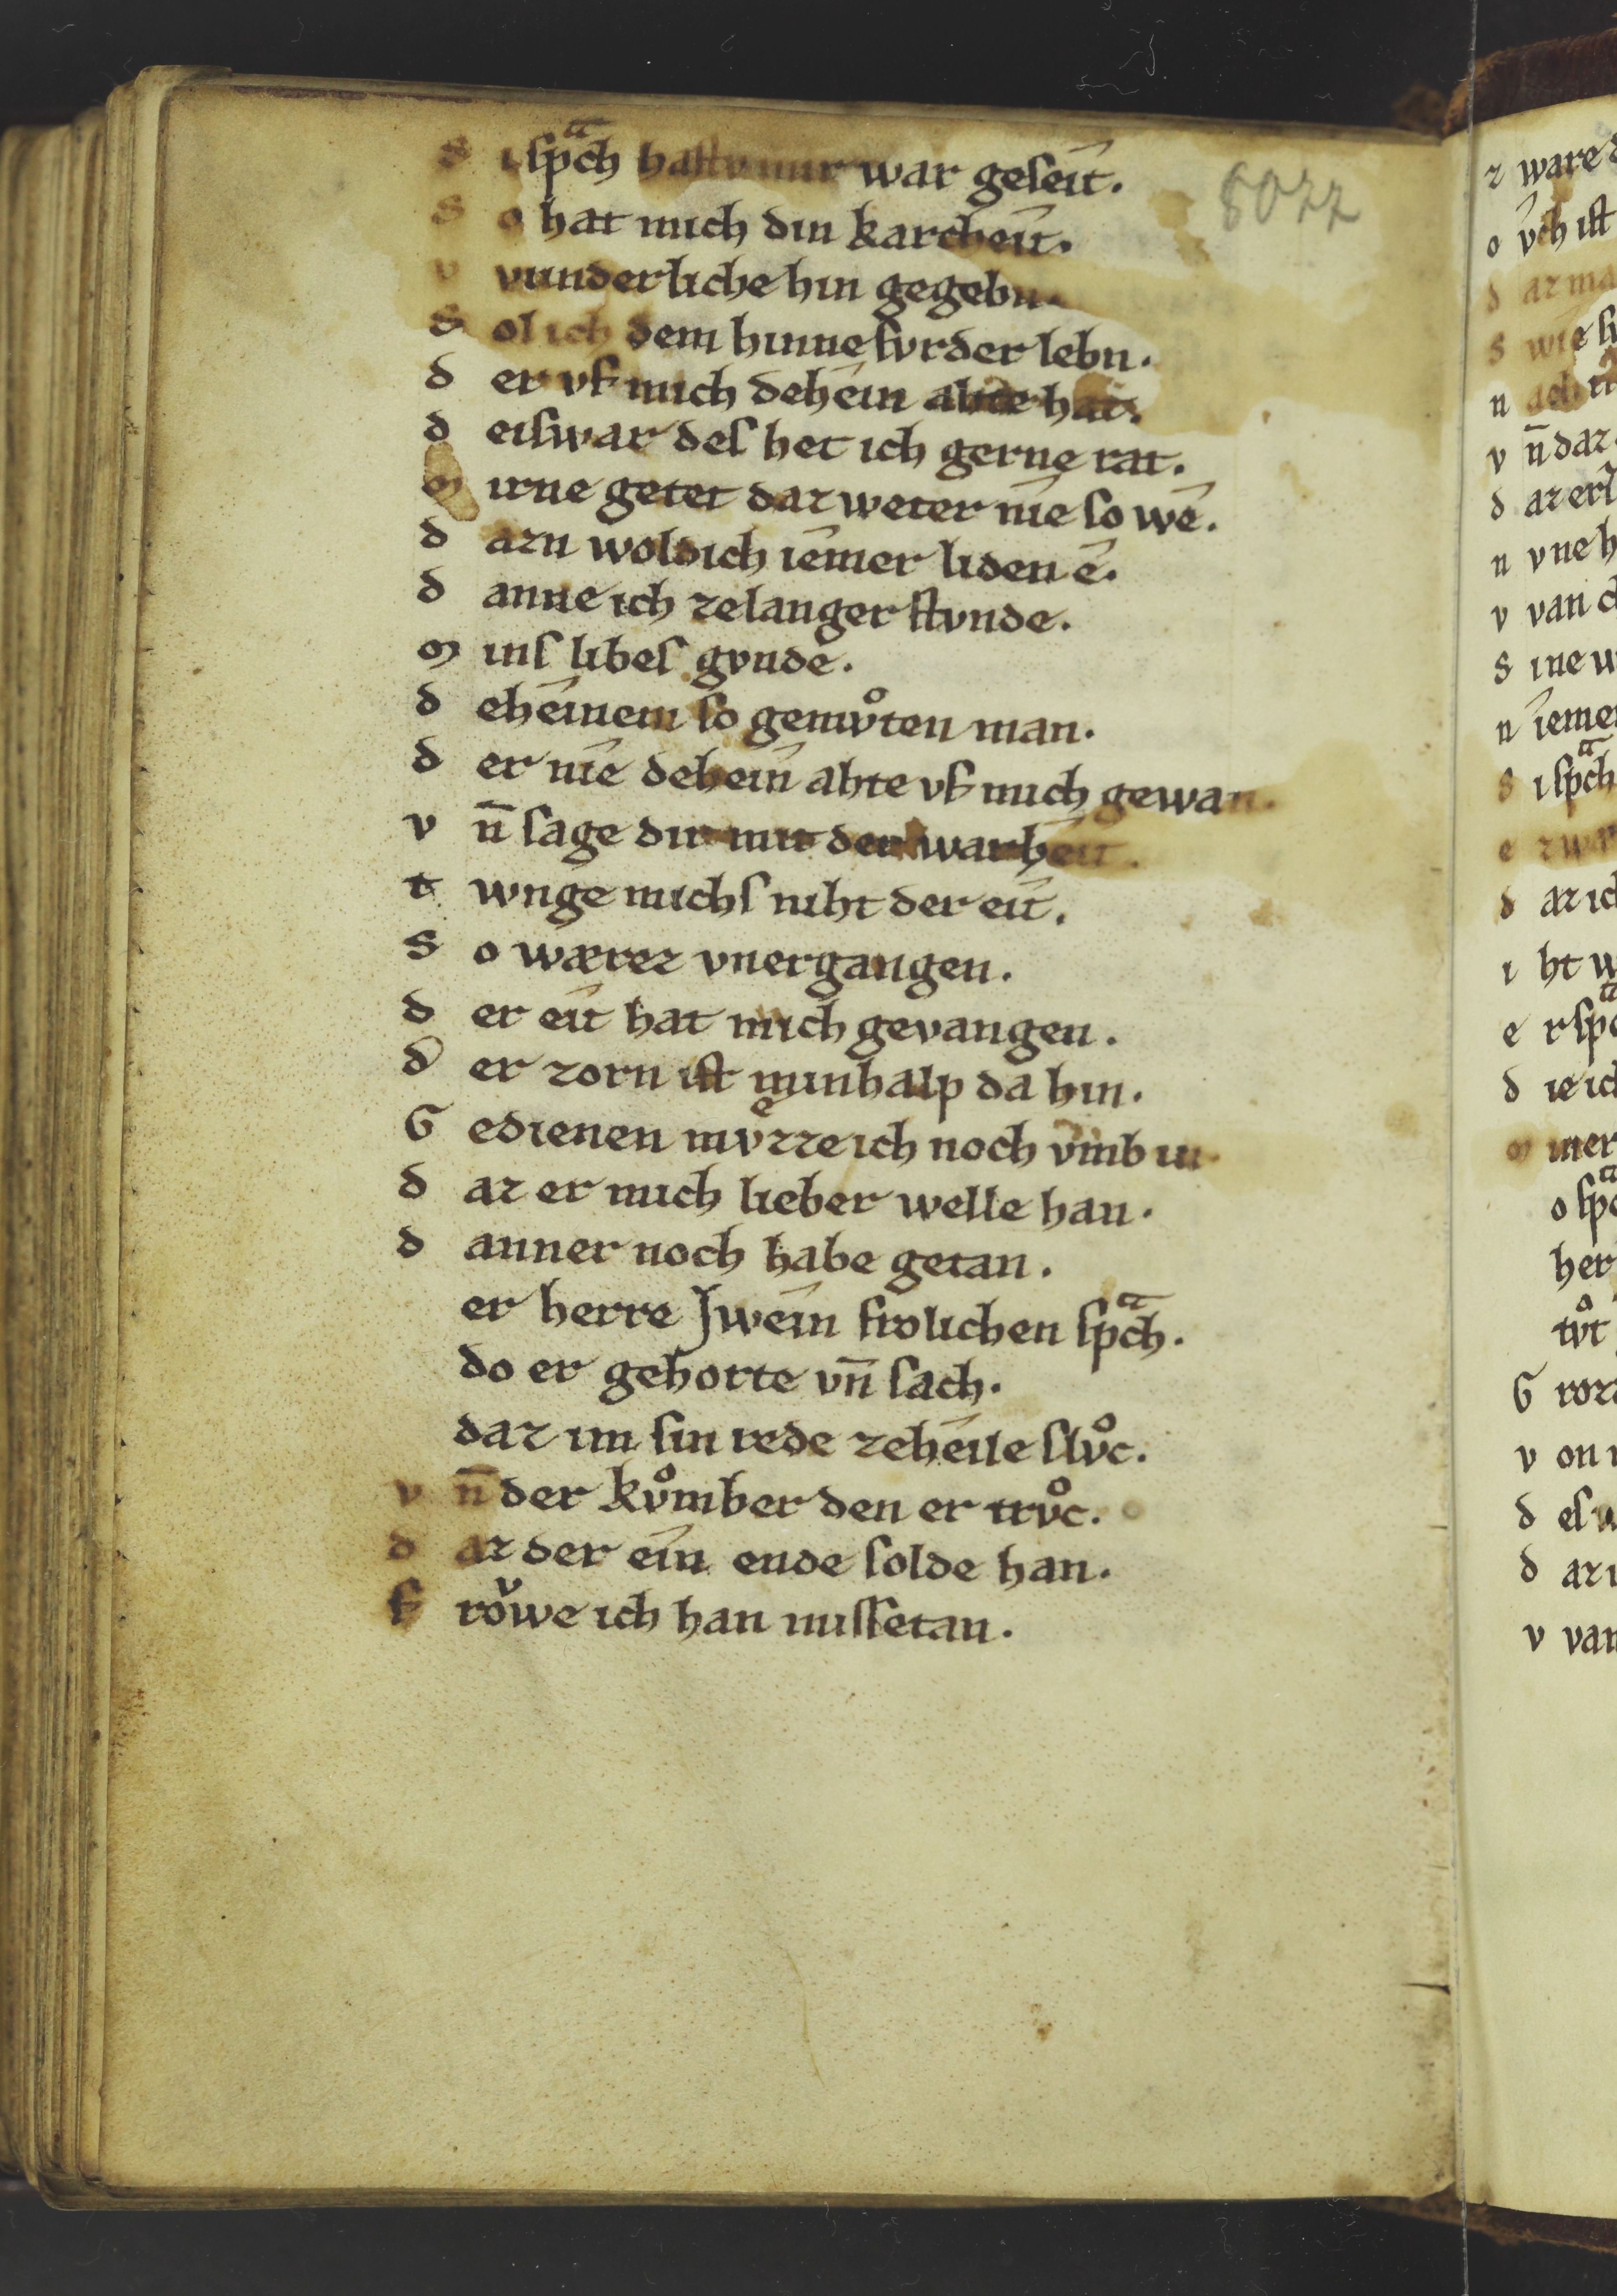 S i sp̄ͣch hastv mir war geseit. 8077
S o hat mich din karcheit.
v vunderliche hin gegebn.
S ol ich dem hinne fvrder lebn.
d er vf mich dehein ahte hat.
d eiswar des het ich gerne rat.
m irne getet daz weter nîe so wê.
d azn woldich îemer liden ê.
d anne ich zelanger stvnde.
m ins libes gvnde.
d eheinem so gemvͦten man.
d er nîe dehein ahte vf mich gewan.
v n̄ sage dir mit der warheit.
t wnge michs niht der eit.
S o wærez vnergangen.
d er eit hat mich gevangen.
d er zorn ist minhalp da hin.
G edienen mvͤzze ich noch vmb in.
d az er mich lieber welle han.
d anner noch habe getan.
er herre Jwein frolichen sp̄ͣch.
do er gehorte vn̄ sach.
daz im sin rede zeheile slvͦc.
v n̄ der kvͦmber den er trvͦc.
d az der ein ende solde han.
f roͮwe ich han missetan.
z ware
o vch ist
d az ma
S wie
n ach
v n̄ daz
d az er
n v ne
v van
S ine
n iemer
S i sp̄ͣch
e z
d az ich
i ht
e r
d ie ich
m iner
o
her
tvͦt
G roz
v on
d es
d az
v van